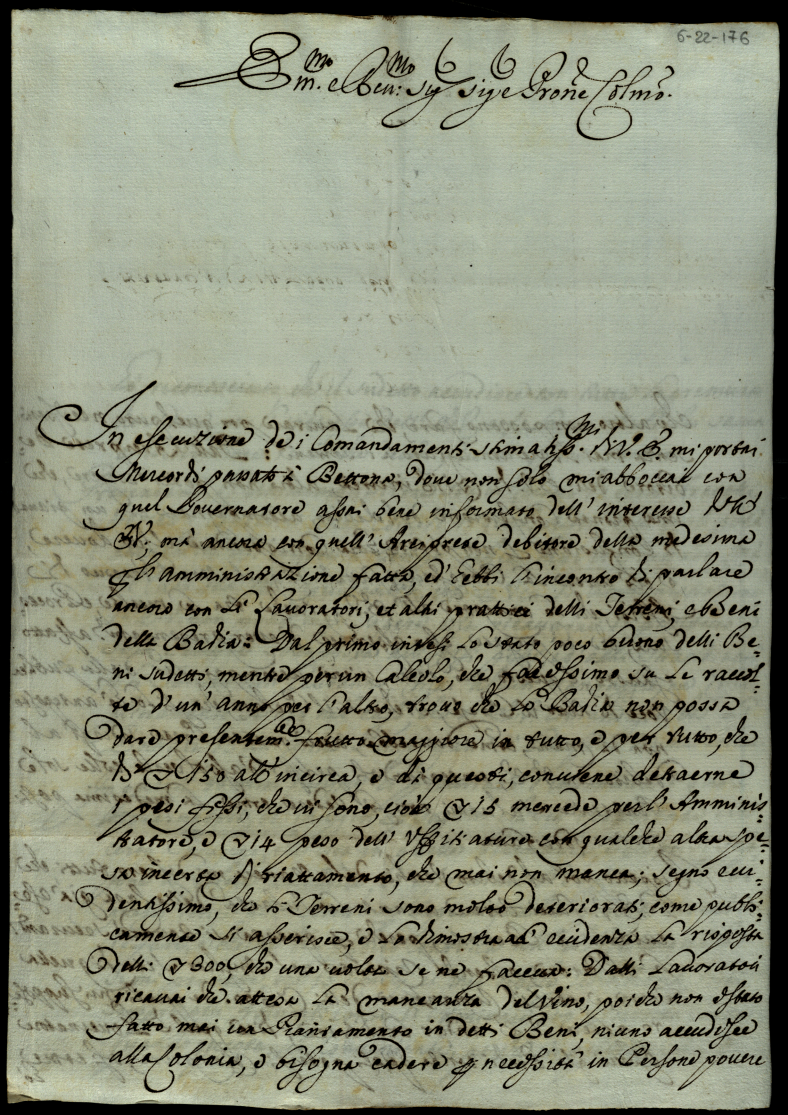 6-22-176
Em.mo e Reu.mo Sig Sig e Prone Colmo.
In esecuzione de i Comandamenti stimatiss.mi di V. E. mi portai
Mercordi passato à Bettona, doue non solo mi abboccai con
quel Gouernatore assai bene informato dell' interesse
mà ancora con quell' Arciprete debitore della medesima
amministrazione fatta, ed' hebbi l'incontro di parlare
ancora con li Lauoratori, et altri prattici delli Terreni, e beni
della Badia: Dal primo intesi lo stato poco buono delli Be-
ni sudetti, mentre per un Calcolo, che facessimo su le raccol-
te d'un' anno per l'altro, trouo che la Badia non possa
dare presentem.te frutto maggiore in tutto, e per tutto, che
di 150 all' incirca, e di questi, conuiene detraerne
i pesi fissi, che ui sono, cioè 15 mercede per l' Amminis-
tratore, e 14 peso dell' Uffitiatura con qualche altra spe-
sa incerta di riattamento, che mai non manca; segno eui-
dentissimo, che li Terreni sono molto deteriorati, come publi-
camente si asserisce, e lo dimostra all' euidenza la risposta
delli 300, che una uolta se ne faceua: Dalli Lauoratori
ricauai che attesa la mancanza del Vino, poiche non è stato
fatto mai un Piantamento in detti Beni, niuno accudisce
alla Colonia, e bisogna cadere p necessità in Persone pouere